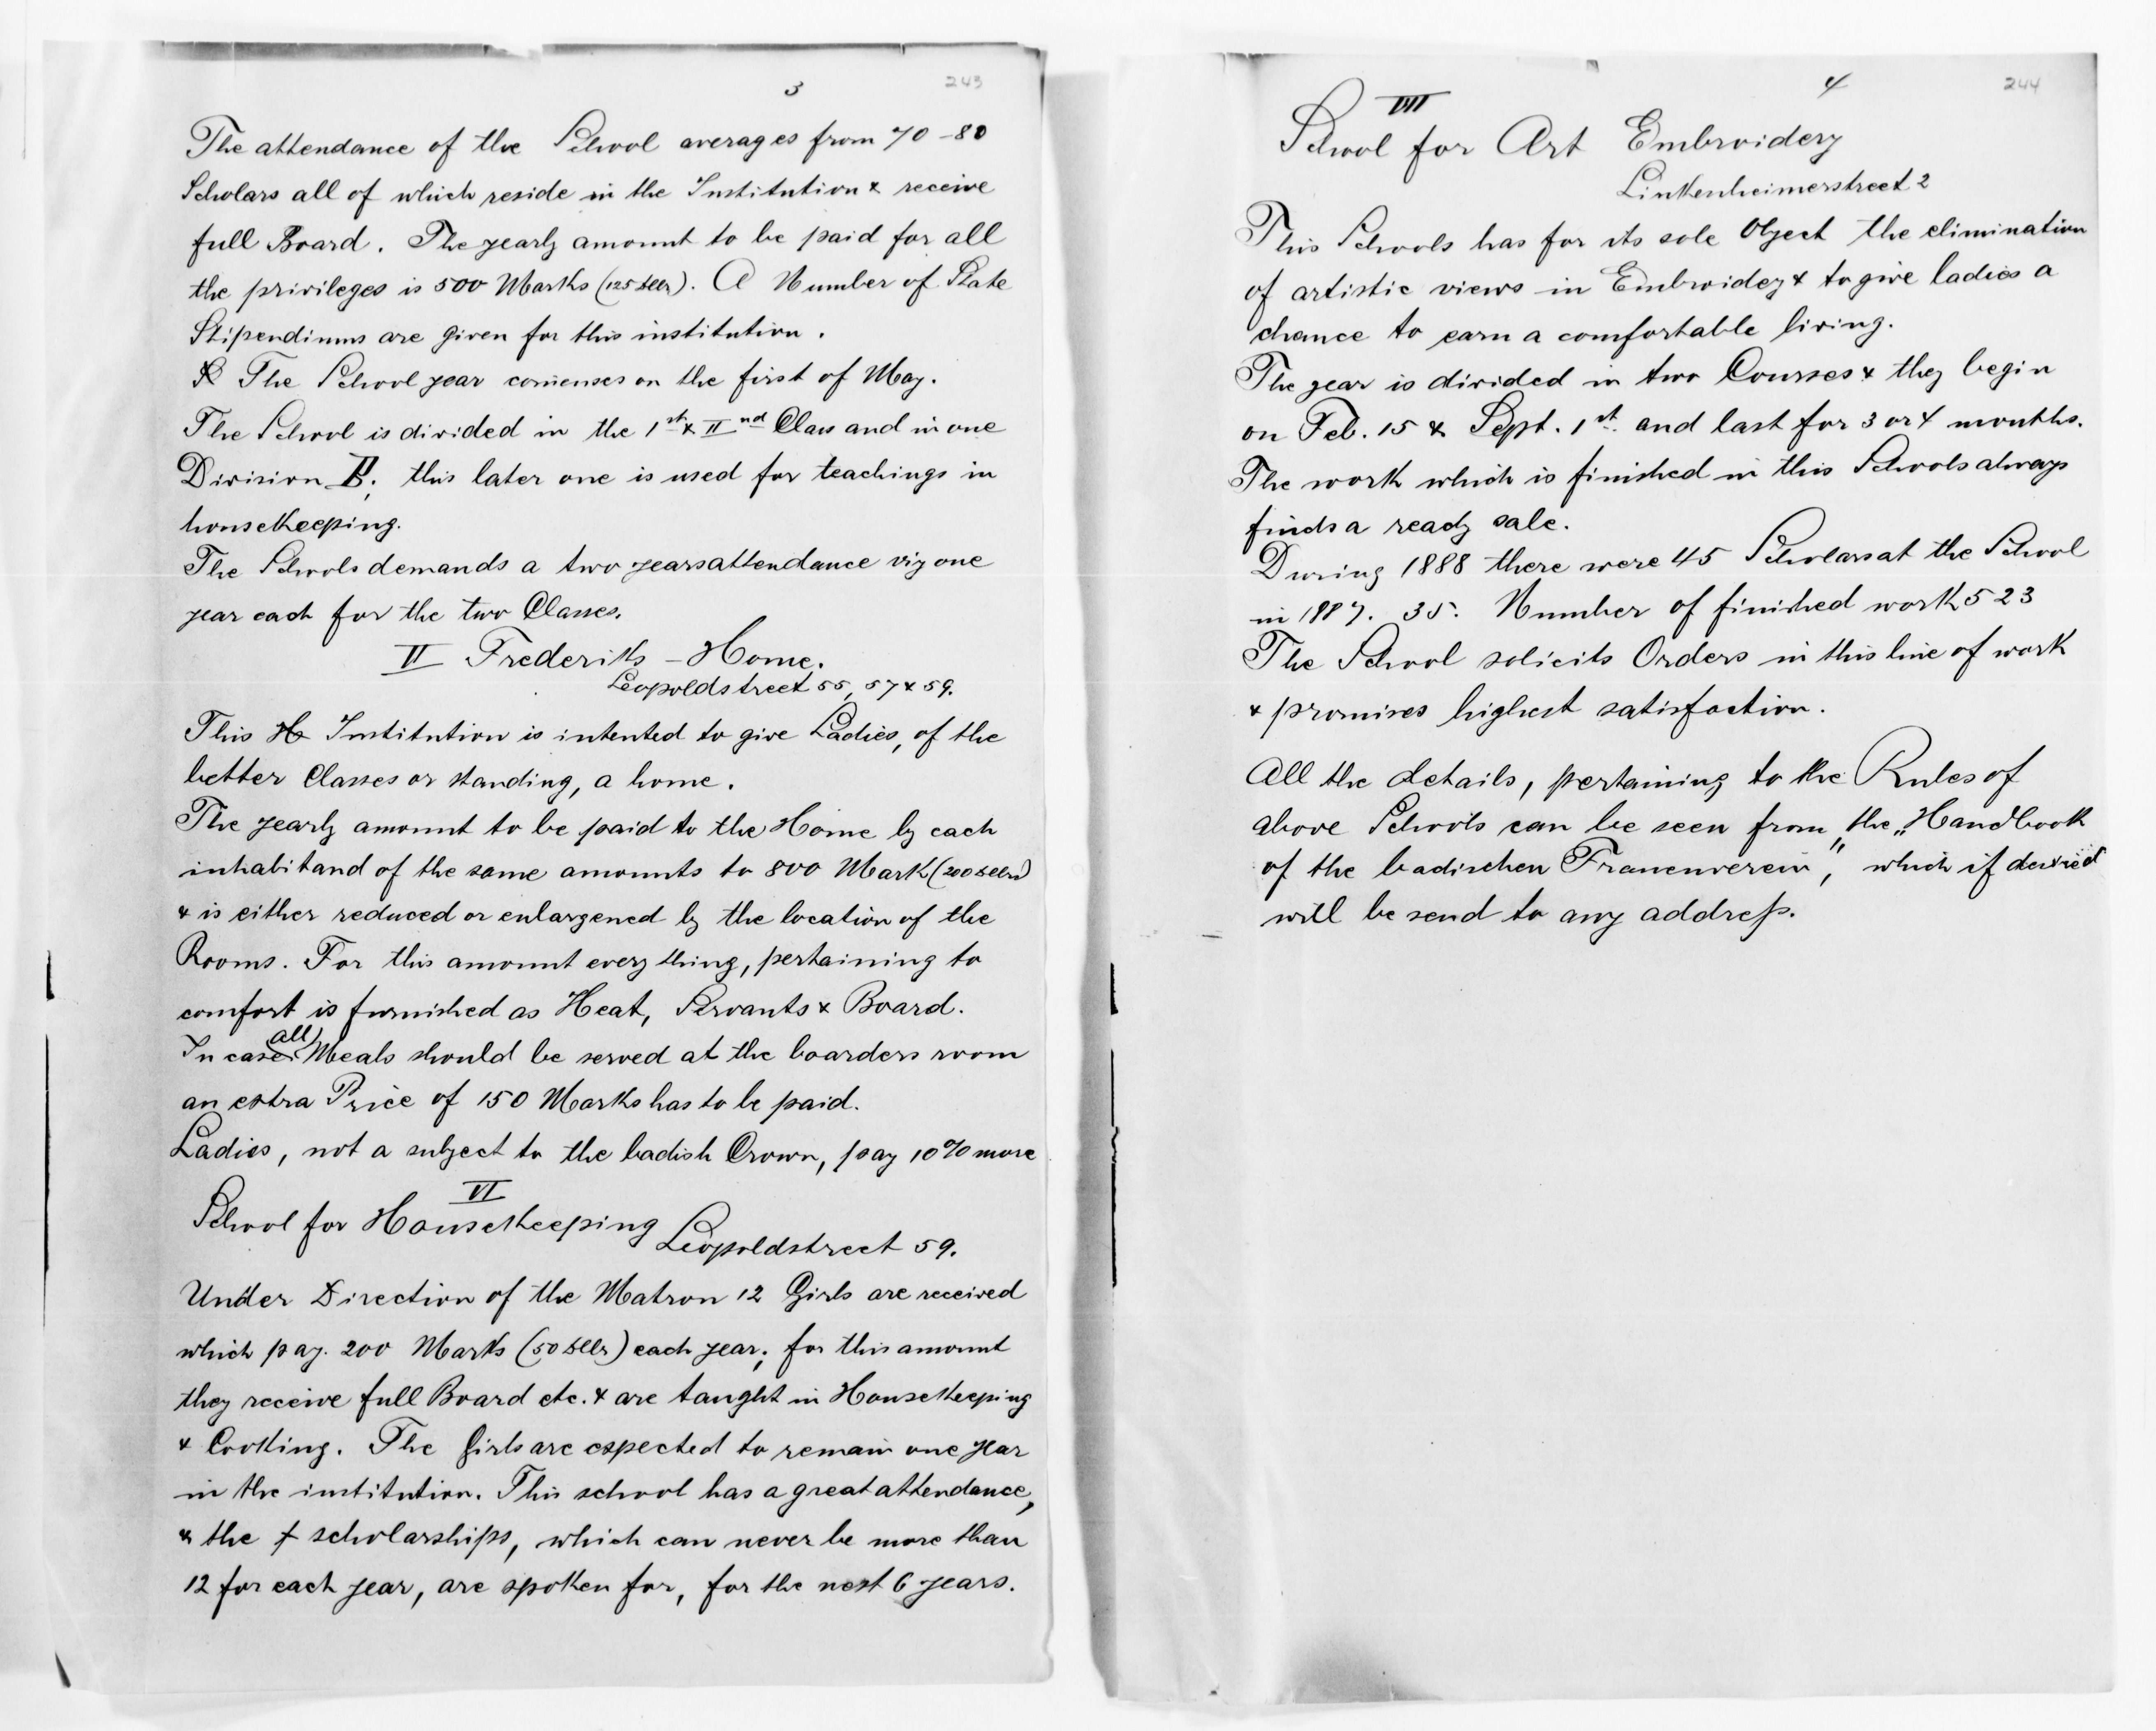 3
243
The attendance of the School averages from 70-80
Scholars all of which reside in the Institution & receive
full Board. The yearly amount to be paid for all
the privileges is 500 Marks (125 dllr). A Number of State
Stipendiums are given for this institution.
The School year comenses on the first of May.
The School is divided in the 1st & IInd Class and in one
Division B; this later one is used for teachings in
houseKeeping.
The Schools demands a two years attendance viz one
year each for the two Classes.
II Frederiks-Home.
Leopoldstreet 55, 57 & 59.
This H Institution is intented to give Ladies, of the
better Classes or standing, a home.
The yearly amount to be paid to the Home by each
inhabitand of the same amounts to 800 Mark (200 dllrs)
& is either reduced or enlargened by the location of the
Rooms. For this amount every thing, pertaining to
comfort is furnished as Heat, Servants & Board.
In case all Meals should be served at the boarders room
an extra Price of 150 Marks has to be paid.
Ladies, not a subject to the badish Crown, pay 10% more
VI
School for HouseKeeping
Leopoldstreet 59.
Under Direction of the Matron 12 Girls are received
which pay. 200 Marks (50 dllr) each year; for this amount
they receive full Board etc. & are taught in HouseKeeping
& Cooking. The Girls are expected to remain one year
in the institution. This school has a great attendance,
& the f scholarships, which can never be more than
12 for each year, are spoken for, for the next 6 years.
4
244
VII
School for Art Embroidery
Linkenheimerstreet 2
This Schools has for its sole Object the elimination
of artistic views in Embroidey & to give ladies a
chance to earn a comfortable living.
The year is divided in two Courses & they begin
on Feb. 15 & Sept. 1st. and last for 3 or 4 months.
The work which is finished in this Schools always
finds a ready sale.
During 1888 there were 45 Scholars at the School
in 1887. 35. Number of finished work 523
The School solicits Orders in this line of work
& promises highest satisfaction.
All the details, pertaining to the Rules of
above Schools can be seen from the „Handbook
of the badischen Frauenverein", which if desired
will be send to any address.